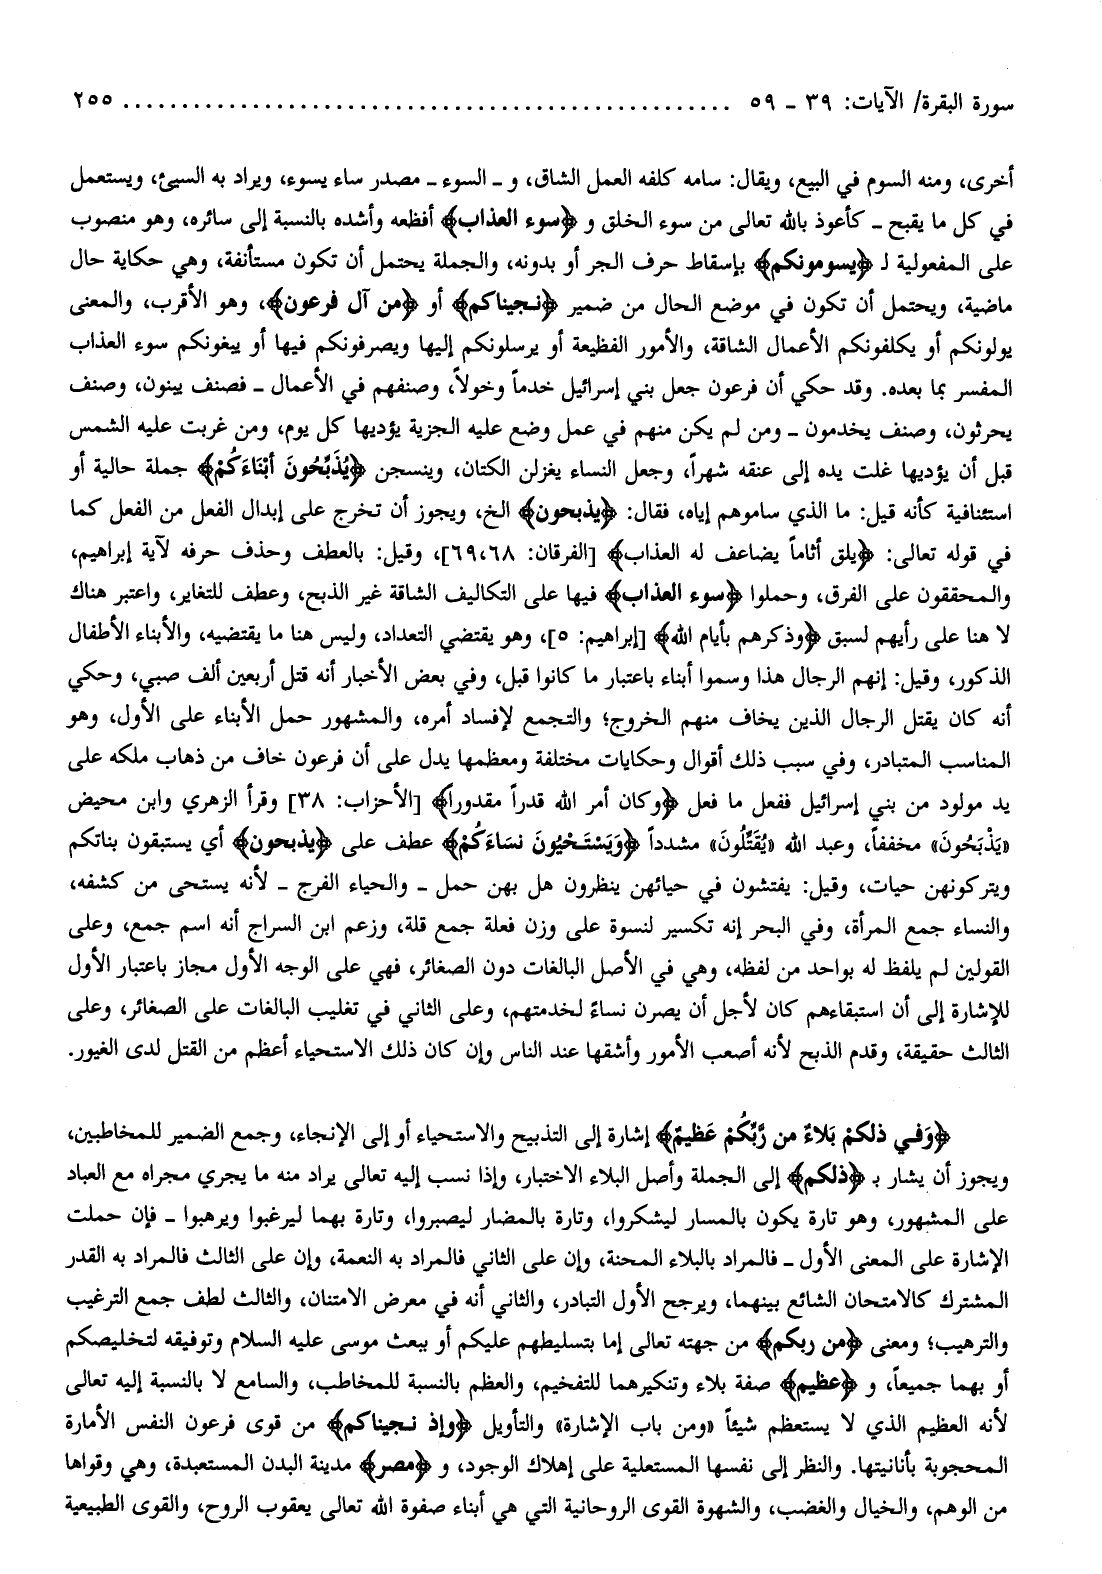 سورة البقرة/ الآيات: ٣٩ ـ ٥٩ ........................................................ ٢٥٥
أخرى، ومنه السوم في البيع، ويقال: سامه كلفه العمل الشاق، و ـ السوء ـ مصدر ساء يسوء، ويراد به السيئ، ويستعمل
في كل ما يقبح ـ كأعوذ بالله تعالى من سوء الخلق و ﴿سوء العذاب﴾ أفظعه وأشده بالنسبة إلى سائره، وهو منصوب
على المفعولية لـ ﴿يسومونكم﴾ بإسقاط حرف الجر أو بدونه، والجملة يحتمل أن تكون مستأنفة، وهي حكاية حال
ماضية، ويحتمل أن تكون في موضع الحال من ضمير ﴿نجيناكم﴾ أو ﴿من آل فرعون﴾، وهو الأقرب، والمعنى
يولونكم أو يكلفونكم الأعمال الشاقة، والأمور الفظيعة أو يرسلونكم إليها ويصرفونكم فيها أو يبغونكم سوء العذاب
المفسر بما بعده. وقد حكي أن فرعون جعل بني إسرائيل خدماً وخولاً، وصنفهم في الأعمال ـ فصنف يبنون، وصنف
يحرثون، وصنف يخدمون ـ ومن لم يكن منهم في عمل وضع عليه الجزية يؤديها كل يوم، ومن غربت عليه الشمس
قبل أن يؤديها غلت يده إلى عنقه شهراً، وجعل النساء يغزلن الكتان، وينسجن ﴿يُذَبِّحُونَ أَبْنَاءَكُمْ﴾ جملة حالية أو
استئنافية كأنه قيل: ما الذي ساموهم إياه، فقال: ﴿يذبحون﴾ الخ، ويجوز أن تخرج على إبدال الفعل من الفعل كما
في قوله تعالى: ﴿يلق أثاماً يضاعف له العذاب﴾ [الفرقان: ٦٨،٦٩]، وقيل: بالعطف وحذف حرفه لآية إبراهيم،
والمحققون على الفرق، وحملوا ﴿سوء العذاب﴾ فيها على التكاليف الشاقة غير الذبح، وعطف للتغاير، واعتبر هناك
لا هنا على رأيهم لسبق ﴿وذكرهم بأيام الله﴾ [إبراهيم: ٥]، وهو يقتضي التعداد، وليس هنا ما يقتضيه، والأبناء الأطفال
الذكور، وقيل: إنهم الرجال هذا وسموا أبناء باعتبار ما كانوا قبل، وفي بعض الأخبار أنه قتل أربعين ألف صبي، وحكي
أنه كان يقتل الرجال الذين يخاف منهم الخروج؛ والتجمع لإفساد أمره، والمشهور حمل الأبناء على الأول، وهو
المناسب المتبادر، وفي سبب ذلك أقوال وحكايات مختلفة ومعظمها يدل على أن فرعون خاف من ذهاب ملكه على
يد مولود من بني إسرائيل ففعل ما فعل ﴿وكان أمر الله قدراً مقدوراً﴾ [الأحزاب: ٣٨] وقرأ الزهري وابن محيض
«يَذْبَحُونَ» مخففاً، وعبد الله «يُقَتِّلُونَ» مشدداً ﴿وَيَسْتَحْيُونَ نسَاءَكُمْ﴾ عطف على ﴿يذبحون﴾ أي يستبقون بناتكم
ويتركونهن حيات، وقيل: يفتشون في حيائهن ينظرون هل بهن حمل ـ والحياء الفرج ـ لأنه يستحى من كشفه،
والنساء جمع المرأة، وفي البحر إنه تكسير لنسوة على وزن فعلة جمع قلة، وزعم ابن السراج أنه اسم جمع، وعلى
القولين لم يلفظ له بواحد من لفظه، وهي في الأصل البالغات دون الصغائر، فهي على الوجه الأول مجاز باعتبار الأول
للإشارة إلى أن استبقاءهم كان لأجل أن يصرن نساءً لخدمتهم، وعلى الثاني في تغليب البالغات على الصغائر، وعلى
الثالث حقيقة، وقدم الذبح لأنه أصعب الأمور وأشقها عند الناس وإن كان ذلك الاستحياء أعظم من القتل لدى الغيور.
﴿وَفي ذلكمْ بَلاءٌ من رَّبِّكُمْ عَظيمٌ﴾ إشارة إلى التذبيح والاستحياء أو إلى الإنجاء، وجمع الضمير للمخاطبين،
ويجوز أن يشار بـ ﴿ذلكم﴾ إلى الجملة وأصل البلاء الاختبار، وإذا نسب إليه تعالى يراد منه ما يجري مجراه مع العباد
على المشهور، وهو تارة يكون بالمسار ليشكروا، وتارة بالمضار ليصبروا، وتارة بهما ليرغبوا ويرهبوا ـ فإن حملت
الإشارة على المعنى الأول ـ فالمراد بالبلاء المحنة، وإن على الثاني فالمراد به النعمة، وإن على الثالث فالمراد به القدر
المشترك كالامتحان الشائع بينهما، ويرجح الأول التبادر، والثاني أنه في معرض الامتنان، والثالث لطف جمع الترغيب
والترهيب؛ ومعنى ﴿من ربكم﴾ من جهته تعالى إما بتسليطهم عليكم أو ببعث موسى عليه السلام وتوفيقه لتخليصكم
أو بهما جميعاً، و ﴿عظيم﴾ صفة بلاء وتنكيرهما للتفخيم، والعظم بالنسبة للمخاطب، والسامع لا بالنسبة إليه تعالى
لأنه العظيم الذي لا يستعظم شيئاً «ومن باب الإشارة» والتأويل ﴿وإذ نجيناكم﴾ من قوى فرعون النفس الأمارة
المحجوبة بأنانيتها. والنظر إلى نفسها المستعلية على إهلاك الوجود، و ﴿مصر﴾ مدينة البدن المستعبدة، وهي وقواها
من الوهم، والخيال والغضب، والشهوة القوى الروحانية التي هي أبناء صفوة الله تعالى يعقوب الروح، والقوى الطبيعية